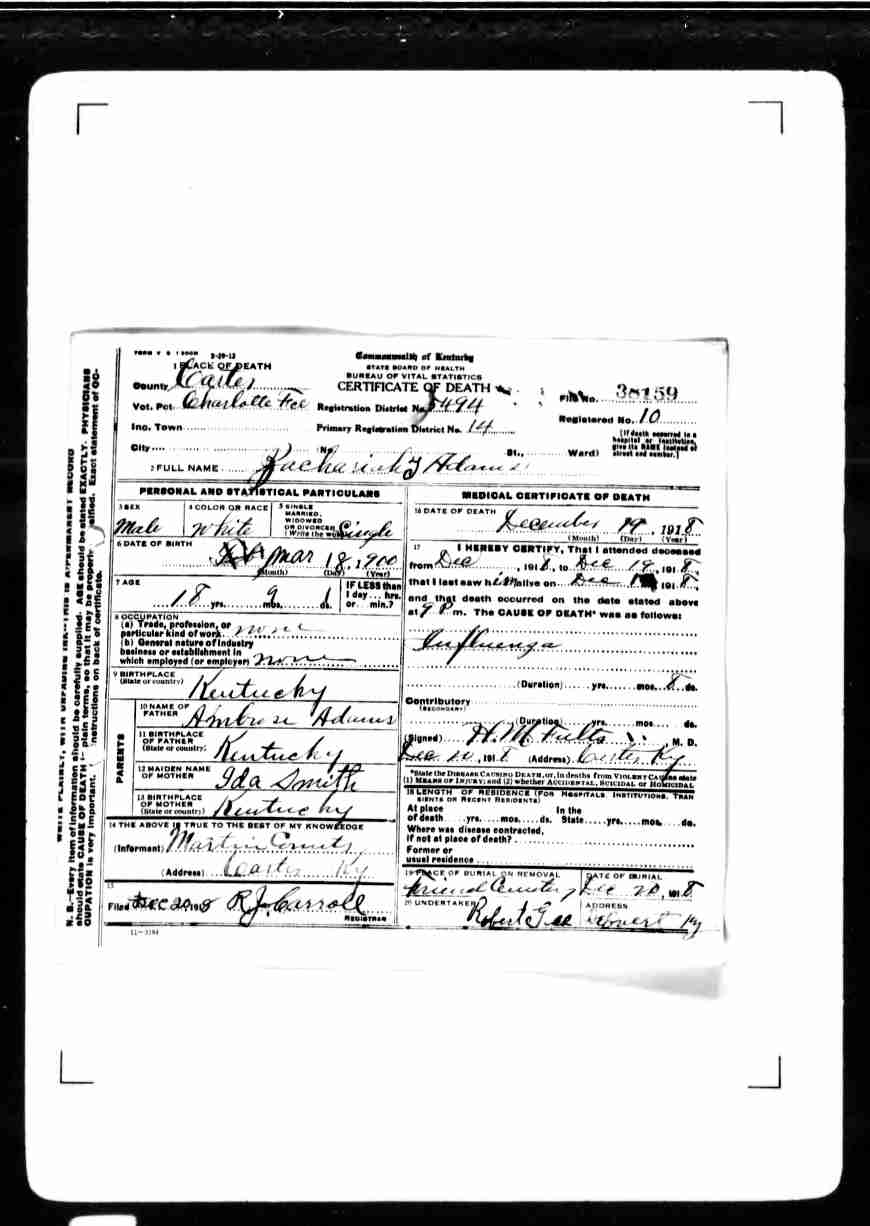 FORM V S 1 500M 2-29-12
Commonwealth of Kentucky
STATE BOARD OF HEALTH
BUREAU OF VITAL STATISTICS
CERTIFICATE OF DEATH
1 PLACE OF DEATH
County Carter
Vot. Pct. Charlotte Fee
Registration District No. 5494
File No. 38159
Inc. Town
Primary Registration District No. 14
Registered No. 10
City
No. St., Ward)
[If death occurred in a hospital or institution, give its NAME instead of street and number.]
2 FULL NAME Zachariah T Adams
PERSONAL AND STATISTICAL PARTICULARS
3 SEX
Male
4 COLOR OR RACE
White
5 SINGLE
MARRIED,
WIDOWED
OR DIVORCED
(Write the word)
Single
6 DATE OF BIRTH
Mar 18, 1900
(Month) (Day) (Year)
7 AGE
18 yrs. 9 mos. 1 ds.
IF LESS than
1 day... hrs.
or... min.?
8 OCCUPATION
(a) Trade, profession, or
particular kind of work none
(b) General nature of industry
business or establishment in
which employed (or employer) none
9 BIRTHPLACE
(State or country)
Kentucky
PARENTS
10 NAME OF
FATHER
Ambrose Adams
11 BIRTHPLACE
OF FATHER
(State or country)
Kentucky
12 MAIDEN NAME
OF MOTHER
Ida Smith
13 BIRTHPLACE
OF MOTHER
(State or country)
Kentucky
14 THE ABOVE IS TRUE TO THE BEST OF MY KNOWLEDGE
(Informant) Martin
(Address) Carter Ky
15
Filed Dec 20 1918 R J Carroll
REGISTRAR
11-3184
MEDICAL CERTIFICATE OF DEATH
16 DATE OF DEATH
December 19, 1918
(Month) (Day) (Year)
17 I HEREBY CERTIFY, That I attended deceased
from Dec, 1918, to Dec 19, 1918,
that I last saw him alive on Dec 1918,
and that death occurred on the date stated above
at 9 P m. The CAUSE OF DEATH* was as follows:
Influenza
(Duration) yrs. mos. 8 ds.
Contributory
(SECONDARY)
(Duration) yrs. mos. ds.
(Signed) H. M. Fults M. D.
Dec 20, 1918 (Address) Carter Ky
*State the DISEASE CAUSING DEATH, or, in deaths from VIOLENT CAUSES state
(1) MEANS OF INJURY; and (2) whether ACCIDENTAL, SUICIDAL or HOMICIDAL
18 LENGTH OF RESIDENCE (FOR HOSPITALS, INSTITUTIONS, TRAN
SIENTS OR RECENT RESIDENTS)
At place In the
of death yrs. mos. ds. State yrs. mos. ds.
Where was disease contracted,
if not at place of death?
Former or
usual residence
19 PLACE OF BURIAL OR REMOVAL
DATE OF BURIAL
Friend Cemetery Dec 20, 1918
20 UNDERTAKER
ADDRESS
Robert Gee Ky
N. B.—Every item of information should be carefully supplied. AGE should be stated EXACTLY. PHYSICIANS
should state CAUSE OF DEATH in plain terms, so that it may be properly classified. Exact statement of OC-
CUPATION is very important. Instructions on back of certificate.
WRITE PLAINLY, WITH UNFADING INK—THIS IS A PERMANENT RECORD